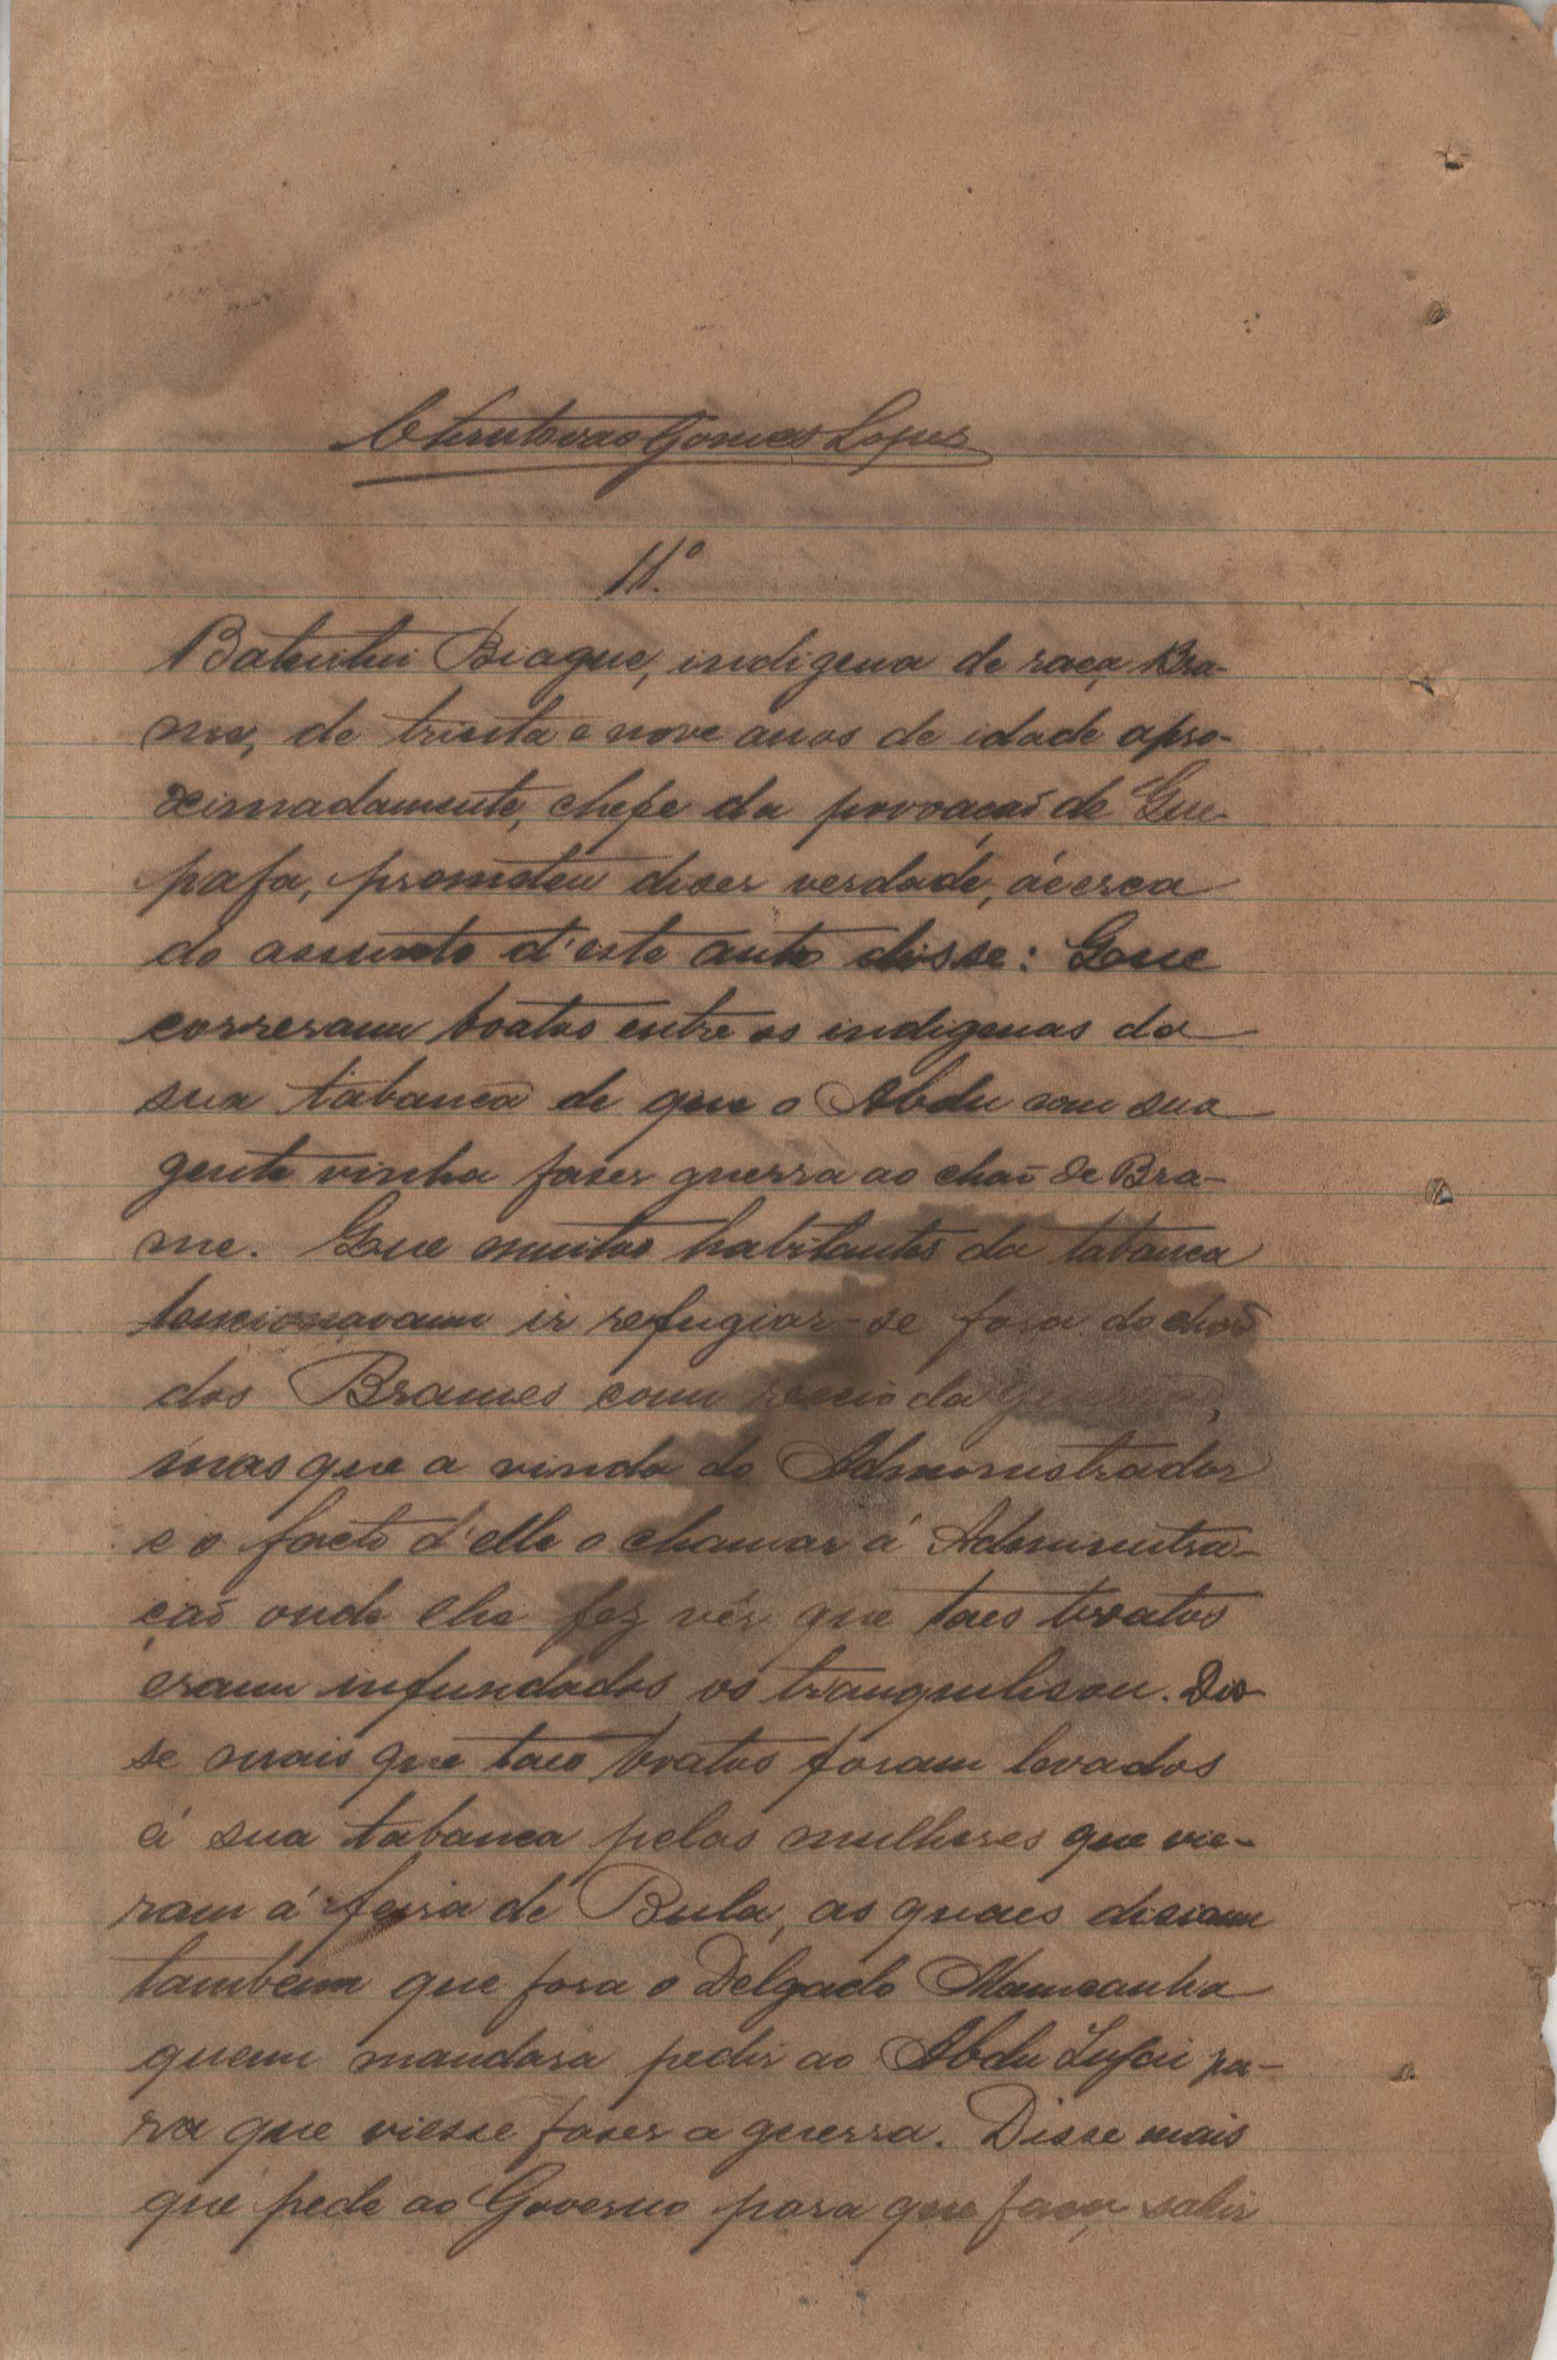 Gomes Lopes
11.º
Biague, indigena de raça Bra-
me, de trinta e nove anos de idade apro-
ximadamente, chefe da povoação de Que-
pafa, prometeu diser verdade, ácerca
do assunto d'este auto disse: Que
correram boatos entre os indigenas da
sua tabanca de que o Abdu com sua
gente vinha faser guerra ao chão de Bra-
me. Que muitos habitantes da tabanca
tencionavam ir refugiar-se fora do chão
dos Brames com receio da guerra,
mas que a vinda do Administrador
e o facto d'elle o chamar á Administra-
ção onde lhe fez vêr que taes boatos
eram infundados os tranquilisou. Dis-
se mais que taes boatos foram levados
á sua tabanca pelas mulheres que vie-
ram á feira de Bula, as quaes disiam
tambem que fora o Delgado Mamcanha
quem mandara pedir ao Abdu Injai pa-
ra que viesse faser a guerra. Disse mais
que pede ao Governo para que faça sahir